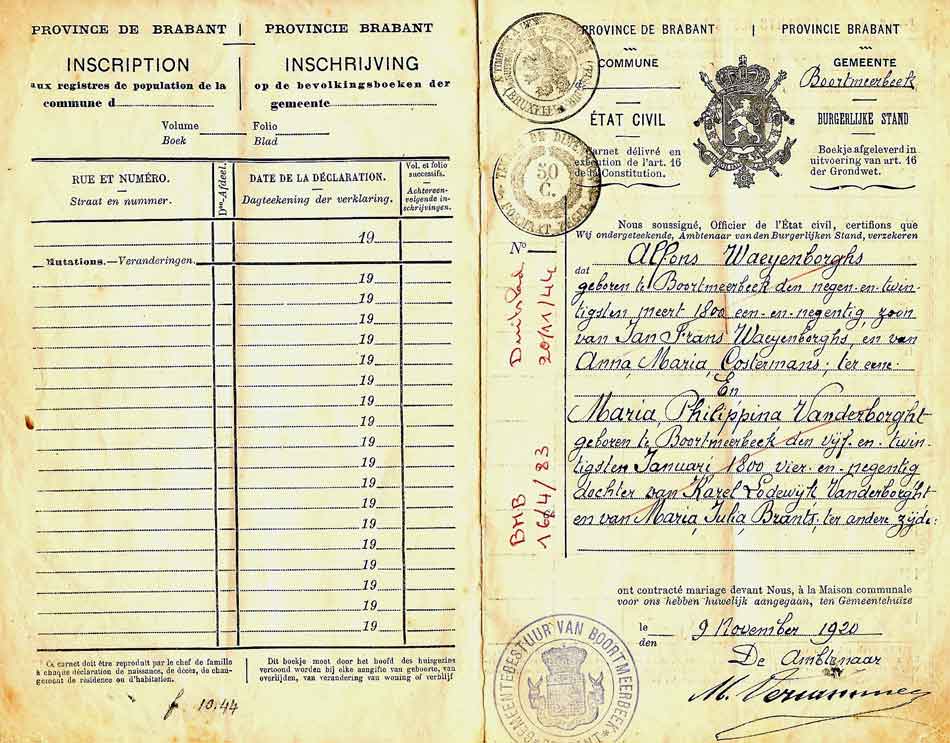 PROVINCE DE BRABANT | PROVINCIE BRABANT
INSCRIPTION
aux registres de population de la
commune d
INSCHRIJVING
op de bevolkingsboeken der
gemeente
Volume Folio
Boek Blad
RUE ET NUMÉRO.
Straat en nummer.
Dm-Afdeel.
DATE DE LA DÉCLARATION.
Dagteekening der verklaring.
Vol. et folio
successifs.
Achtereen-
volgende in-
schrijvingen.
19
Mutations.—Veranderingen.
19
19
19
19
19
19
19
19
19
19
19
19
19
19
19
19
19
19
Ce carnet doit être reproduit par le chef de famille
à chaque déclaration de naissance, de décès, de chan-
gement de résidence ou d'habitation.
Dit boekje moet door het hoofd des huisgezins
vertoond worden bij elke aangifte van geboorte, van
overlijden, van verandering van woning of verblijf
f. 10.44
PROVINCE DE BRABANT
COMMUNE
ÉTAT CIVIL
Carnet délivré en
exécution de l'art. 16
de la Constitution.
PROVINCIE BRABANT
GEMEENTE
Boortmeerbeek
BURGERLIJKE STAND
Boekje afgeleverd in
uitvoering van art. 16
der Grondwet.
50
C.
Nº
Duitsland
20/11/44
BMB
16/4/83
Nous soussigné, Officier de l'État civil, certifions que
Wij ondergeteekende, Ambtenaar van den Burgerlijken Stand, verzekeren
dat
Alfons Waeyenborghs
geboren te Boortmeerbeek den negen-en-twin-
tigsten meert 1800 een-en-negentig, zoon
van Jan Frans Waeyenborghs, en van
Anna Maria Oostermans; ter eene.
En
Maria Philippina Vanderborght
geboren te Boortmeerbeek den vijf-en-twin-
tigsten Januari 1800 vier-en-negentig
dochter van Karel Lodewijk Vanderborght
en van Maria Julia Brants; ter andere zijde:
ont contracté mariage devant Nous, à la Maison communale
voor ons hebben huwelijk aangegaan, ten Gemeentehuize
le
den
9 November 1920
De Ambtenaar
GEMEENTEBESTUUR VAN BOORTMEERBEEK